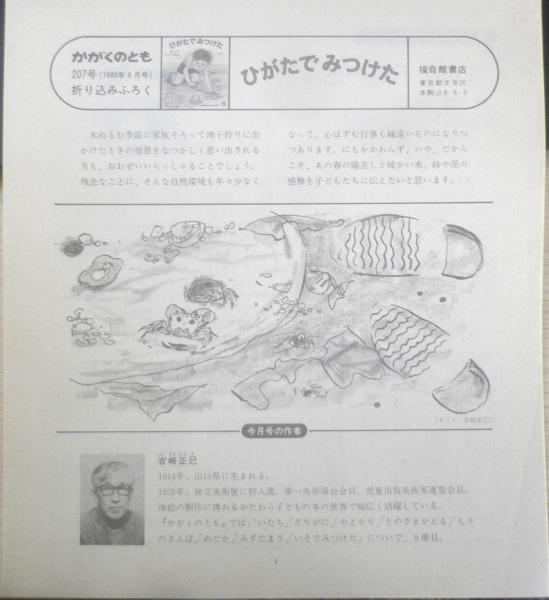 かがくのとも
207号(1986年6月号)
折り込みふろく
ひがたでみつけた
ひがたで みつけた
福音館書店
東京都文京区
本駒込6-6-3
水ぬるむ季節に家族そろって潮干狩りに出
かけたときの情景をなつかしく思い出される
方も、おおぜいいらっしゃることでしょう。
残念なことに、そんな自然環境も年々少なく
なって、心はずむ行事も縁遠いものになりつ
つあります。にもかかわらず、いや、だから
こそ、あの春の陽差しと暖かい水、砂や泥の
感触を子どもたちに伝えたいと思います。
(カット・吉崎正巳)
今月号の作者
吉崎正巳
1914年、山口県に生まれる。
1935年、独立美術展に初入選。第一美術協会会員、児童出版美術家連盟会員。
油絵の制作に携わるかたわら子どもの本の世界で幅広く活躍している。
『かがくのとも』では、「いたち」「ざりがに」「やどかり」「とのさまがえる」「もり
のきんぼ」「めだか」「みずたまり」「いそでみつけた」について、9冊目。
1